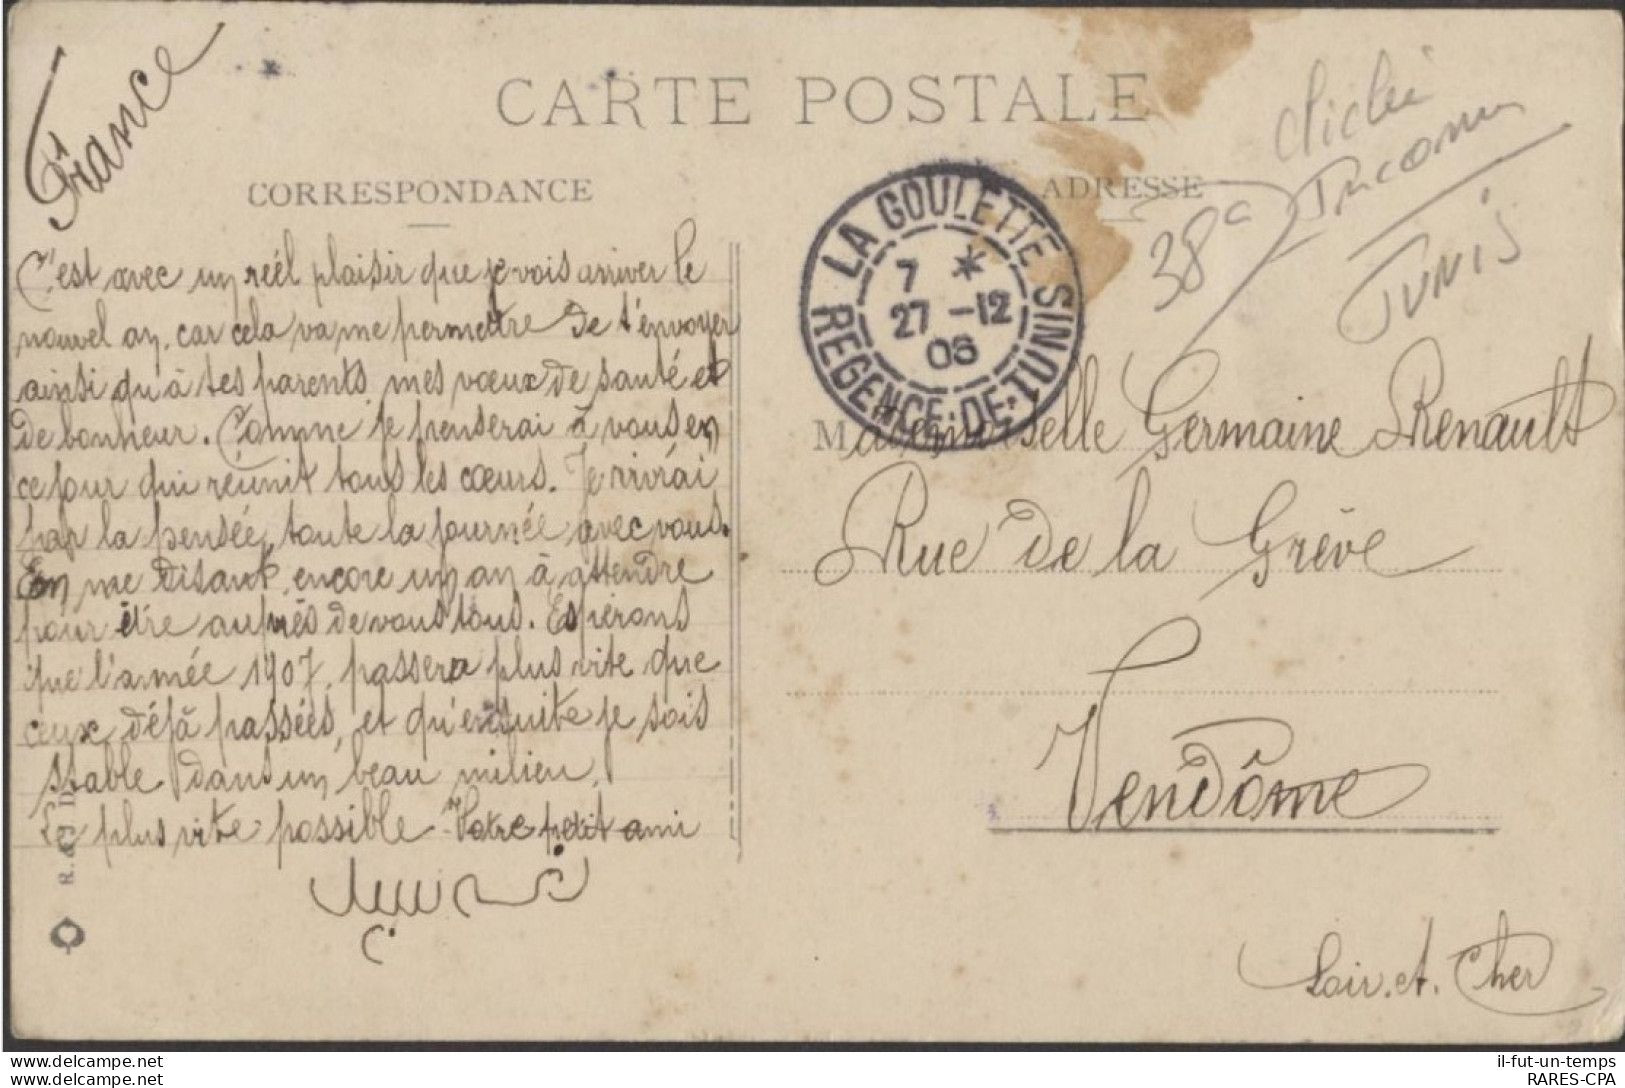 France
CARTE POSTALE
CORRESPONDANCE
ADRESSE
cliché
Inconnu
38e
TUNIS
LA GOULETTE
7 *
27 -12
06
REGENCE-DE-TUNIS
C'est avec un réel plaisir que je vois arriver le
nouvel an, car cela va me permettre de t'envoyer
ainsi qu'à tes parents, mes vœux de santé et
de bonheur. Comme je penserai à vous en
ce jour qui réunit tous les cœurs. Je vivrai
par la pensée, toute la journée avec vous.
En me disant, encore un an à attendre
pour être auprès de vous tous. Espérons
que l'année 1907, passera plus vite que
ceux déjà passées, et qu'ensuite je sois
stable dans un beau milieu,
Le plus vite possible - Votre petit ami
Mademoiselle Germaine Renault
Rue de la Grève
Vendôme
Loir. et. Cher
delcampe.net
delcampe.net
il-fut-un-temps
RARES-CPA